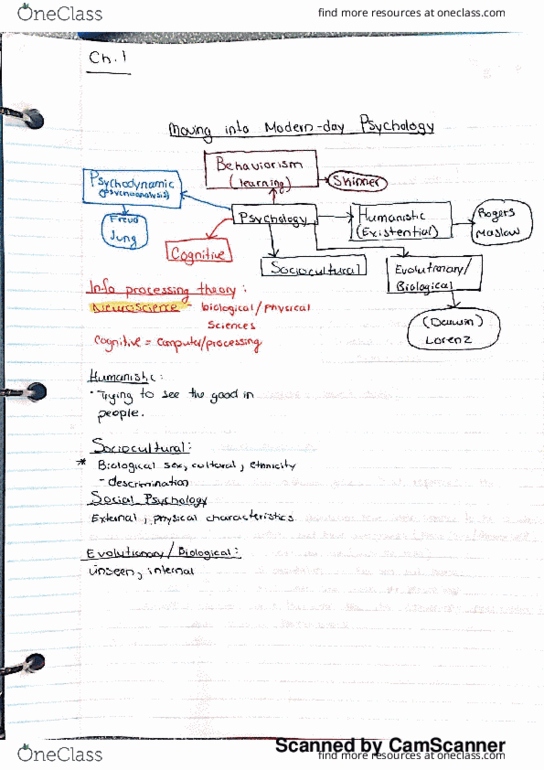 OneClass
find more resources at oneclass.com
Ch. 1
Moving into Modern-day Psychology
Behaviorism
(learning)
Skinner
Psychodynamic
(psychoanalysis)
Freud
Jung
Psychology
Humanistic
(Existential)
Rogers
Maslow
Cognitive
Sociocultural
Evolutionary/
Biological
(Darwin)
Lorenz
Info processing theory:
Neuroscience - biological/physical
sciences
Cognitive = computer/processing
Humanistic:
· Trying to see the good in
people.
Sociocultural:
* Biological sex, cultural, ethnicity
- descrimination
Social Psychology
External, physical characteristics
Evolutionary/Biological:
unseen, internal
Scanned by CamScanner
OneClass
find more resources at oneclass.com